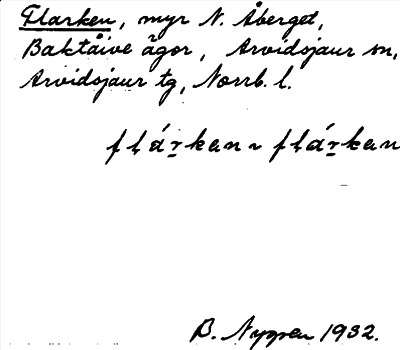 Flarken, myr N. Åberget,
Baktåive ägor, Arvidsjaur sn,
Arvidsjaur tg, Norrb. l.
flárkan ~ flárkan
B. Nygren 1932.